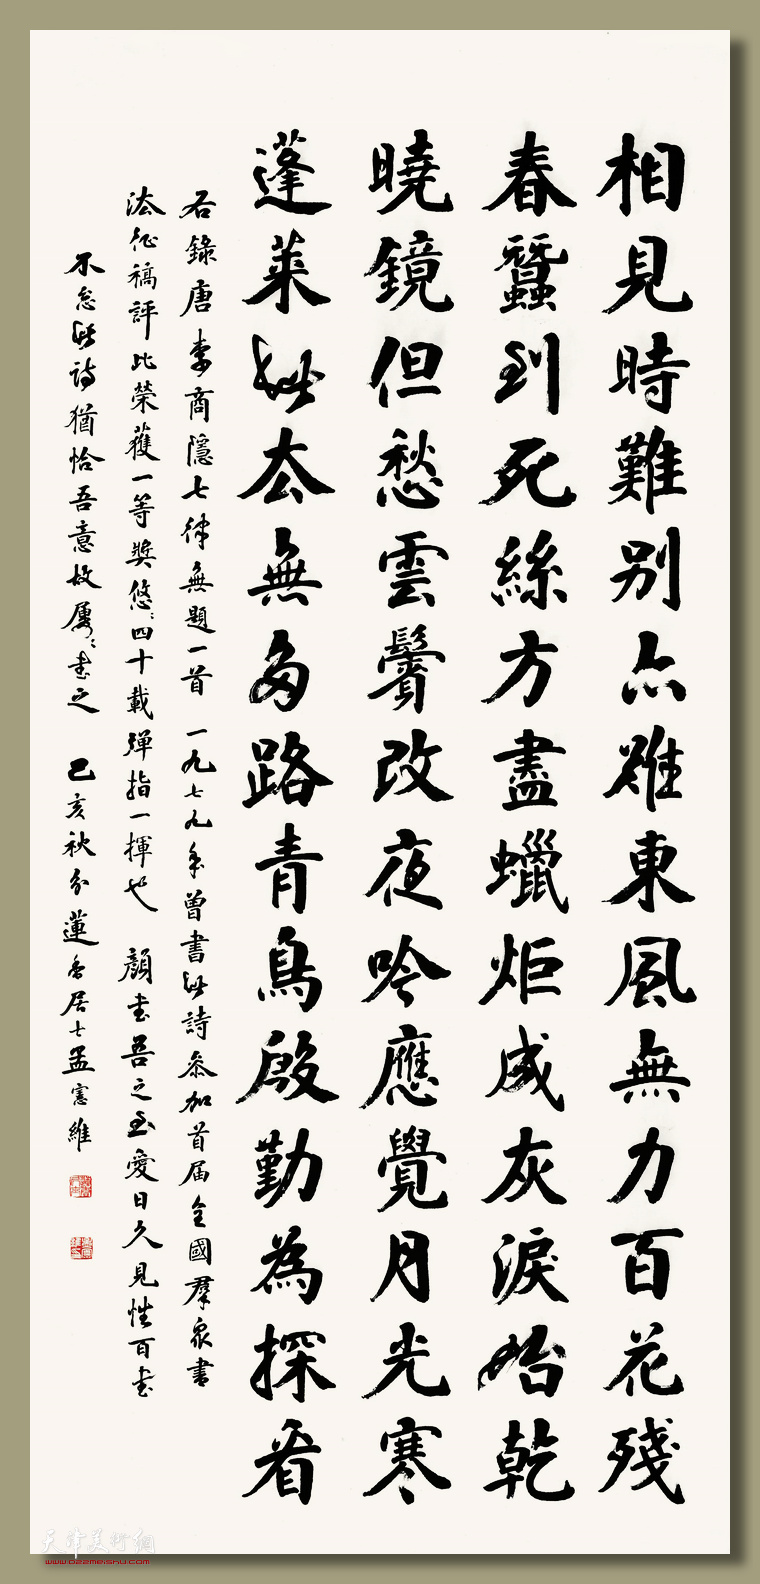 相見時難別亦難東風無力百花殘
春蠶到死絲方盡蠟炬成灰淚始乾
曉鏡但愁雲鬢改夜吟應覺月光寒
蓬萊此去無多路青鳥殷勤為探看
右錄唐李商隱七律無題一首 一九七九年曾書此詩參加首届全國羣衆書
法征稿評比榮獲一等奬悠〻四十載彈指一揮也 顏書吾之至愛日久見性百書
不怠此詩猶恰吾意故屢〻書之 己亥秋分蓮香居士孟憲維
天津美術網
www.022meishu.com